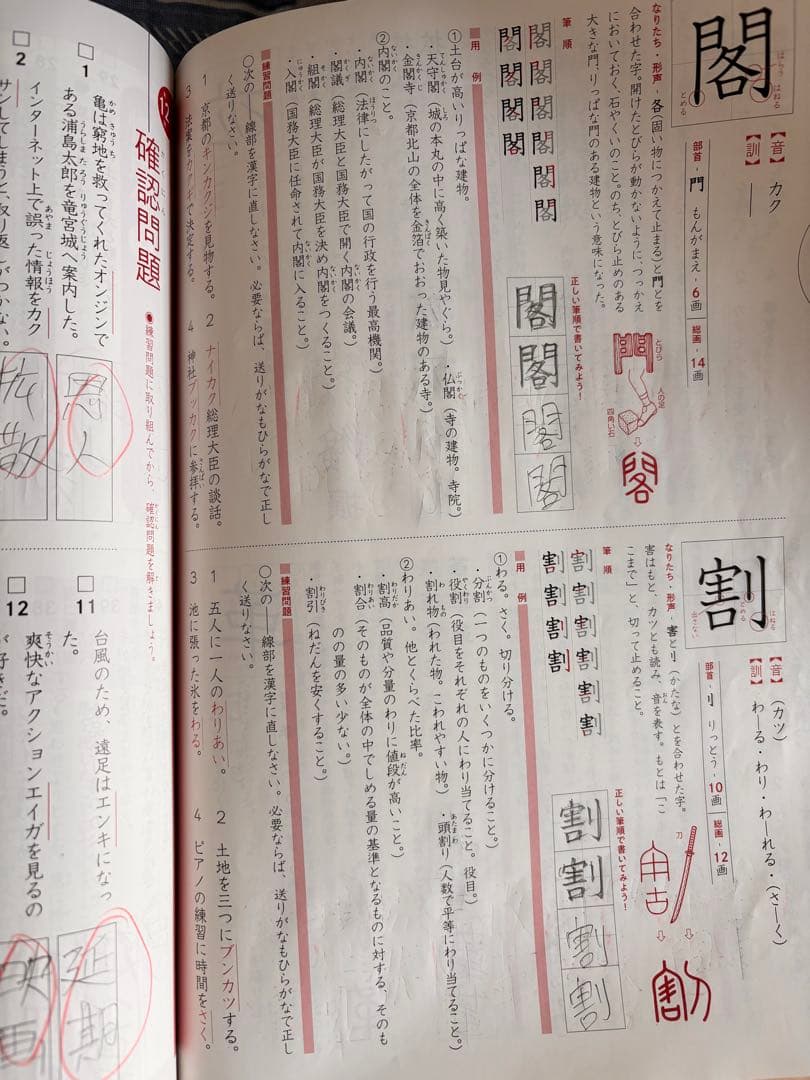 閣
はらう
はねる
とめる
【音】 カク
【訓】 ―
部首 - 門 もんがまえ - 6画 総画 - 14画
なりたち・形声 - 各(固い物につかえて止まる)と門とを
合わせた字。開けたとびらが動かないように、つっかえ
においておく、石やくいのこと。のち、とびら止めのある
大きな門、りっぱな門のある建物という意味になった。
とびら
人の足
四角い石
閣
筆順
閣閣閣閣閣閣閣閣閣
正しい筆順で書いてみよう!
閣閣閣閣
用例
①土台が高いりっぱな建物。
・天守閣(城の本丸の中に高く築いた物見やぐら。) ・仏閣(寺の建物。寺院。)
・金閣寺(京都北山の全体を金箔でおおった建物のある寺。)
②内閣のこと。
・内閣(法律にしたがって国の行政を行う最高機関。)
・閣議(総理大臣と国務大臣で開く内閣の会議。)
・組閣(総理大臣が国務大臣を決め内閣をつくること。)
・入閣(国務大臣に任命されて内閣に入ること。)
練習問題
○次の――線部を漢字に直しなさい。必要ならば、送りがなもひらがなで正し
く送りなさい。
1 京都のキンカクジを見物する。 2 ナイカク総理大臣の談話。
3 法案をカクギで決定する。 4 神社ブッカクに参拝する。
割
とめる
はねる
出さない
【音】 (カツ)
【訓】 わ-る・わり・わ-れる・(さ-く)
部首 - 刂 りっとう - 10画 総画 - 12画
なりたち・形声 - 害と刂(かたな)とを合わせた字。
害はもと、カツとも読み、音を表す。もとは「こ
こまで」と、切って止めること。
刀
割
筆順
割割割割割割割割割
正しい筆順で書いてみよう!
割割割割
用例
①わる。さく。切り分ける。
・分割(一つのものをいくつかに分けること。)
・役割(役目をそれぞれの人にわり当てること。役目。)
・割れ物(われた物。こわれやすい物。) ・頭割り(人数で平等にわり当てること。)
②わりあい。他とくらべた比率。
・割高(品質や分量のわりに値段が高いこと。)
・割合(そのものが全体の中でしめる量の基準となるものに対する、そのも
のの量の多い少ない。)
・割引(ねだんを安くすること。)
練習問題
○次の――線部を漢字に直しなさい。必要ならば、送りがなもひらがなで正し
く送りなさい。
1 五人に一人のわりあい。 2 土地を三つにブンカツする。
3 池に張った氷をわる。 4 ピアノの練習に時間をさく。
12 確認問題
●練習問題に取り組んでから、確認問題を解きましょう。
1 亀は窮地を救ってくれたオンジンで
ある浦島太郎を竜宮城へ案内した。
恩人
2 インターネット上で誤った情報をカク
サンしてしまうと、取り返しがつかない。
拡散
11 台風のため、遠足はエンキになっ
た。
延期
12 爽快なアクションエイガを見るの
が好きだ。
映画